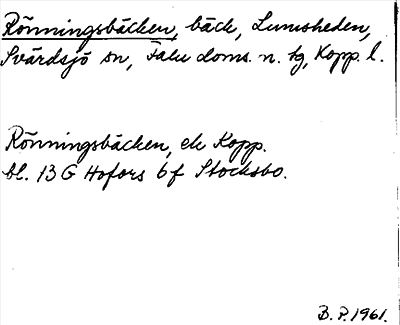 Rönningsbäcken, bäck, Lumsheden,
Svärdsjö sn, Falu doms. n. tg, Kopp. l.
Rönningsbäcken, ek Kopp.
bl. 13 G Hofors 6f Stocksbo.
B. P. 1961.